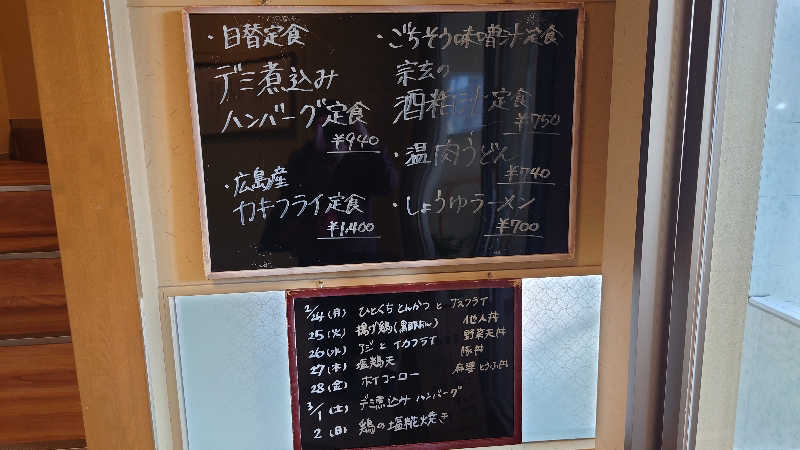 ・日替定食
デミ煮込み
ハンバーグ定食
¥940
・広島産
カキフライ定食
¥1,400
・ごちそう味噌汁定食
宗玄の
酒粕
定食
¥750
・温肉うどん
¥740
・しょうゆラーメン
¥700
2/24(月) ひとくちとんかつと アスフライ
25(火) 揚げ鶏(黒酢あん) 他人丼
26(水) アジとイカフライ 野菜天丼
27(木) 塩鶏天 豚丼
28(金) ホイコーロー 麻婆とうふ丼
3/1(土) デミ煮込みハンバーグ
2(日) 鶏の塩糀焼き